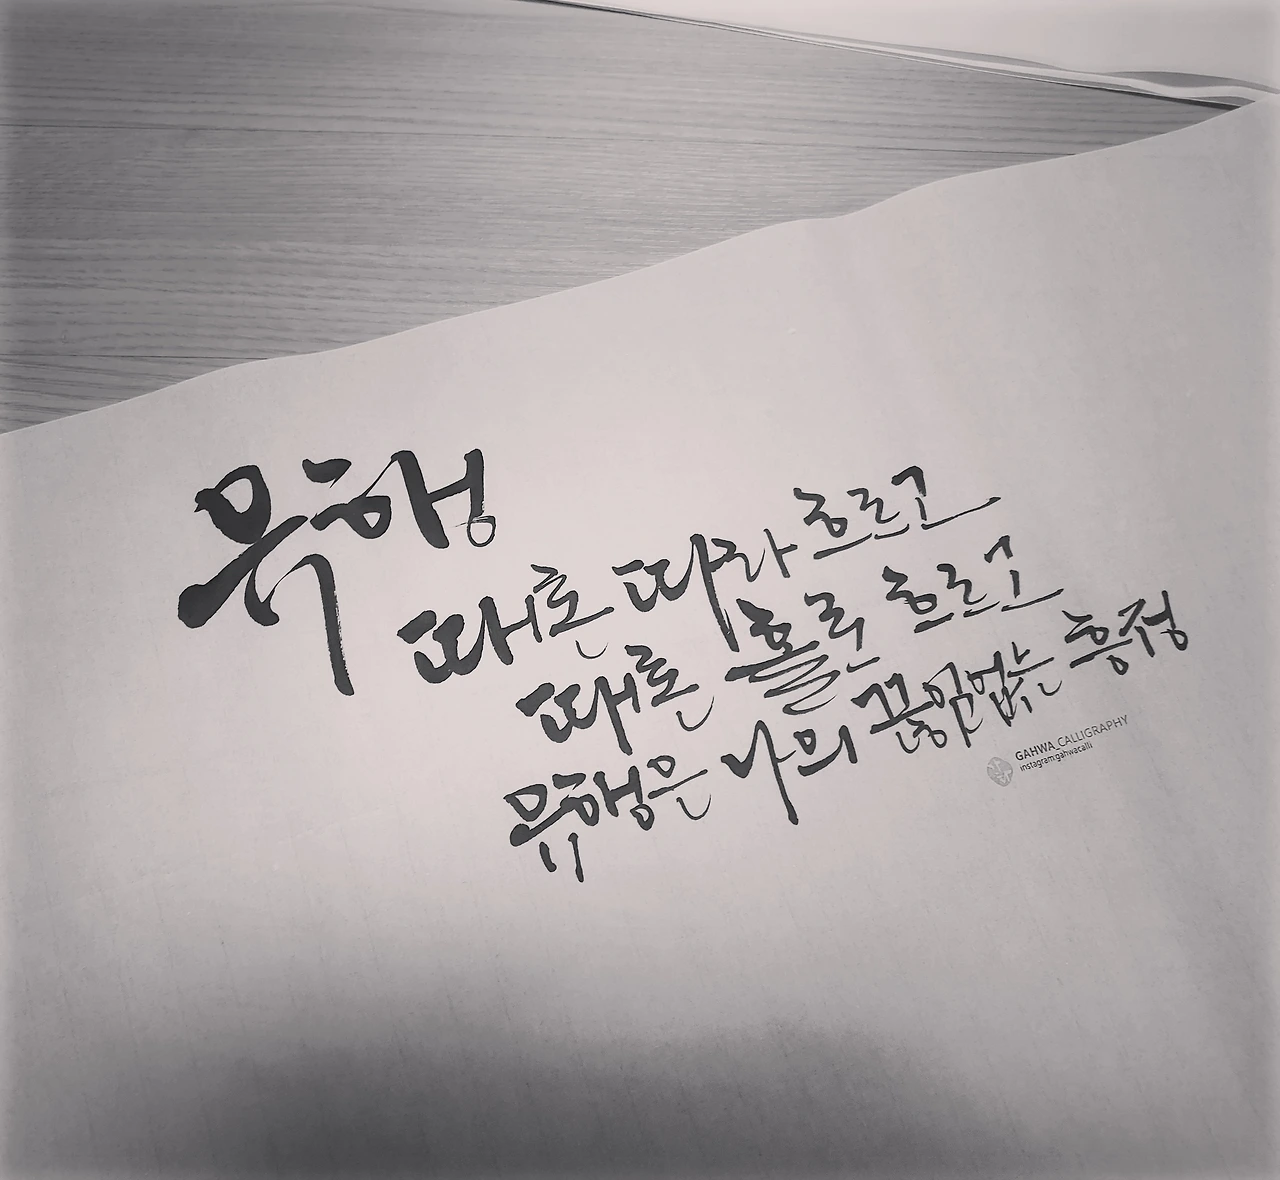 유행
때론 따라 흐르고
때론 홀로 흐르고
유행은 나의 끊임없는 흥정
GAHWA_CALLIGRAPHY
instagram:gahwacalli